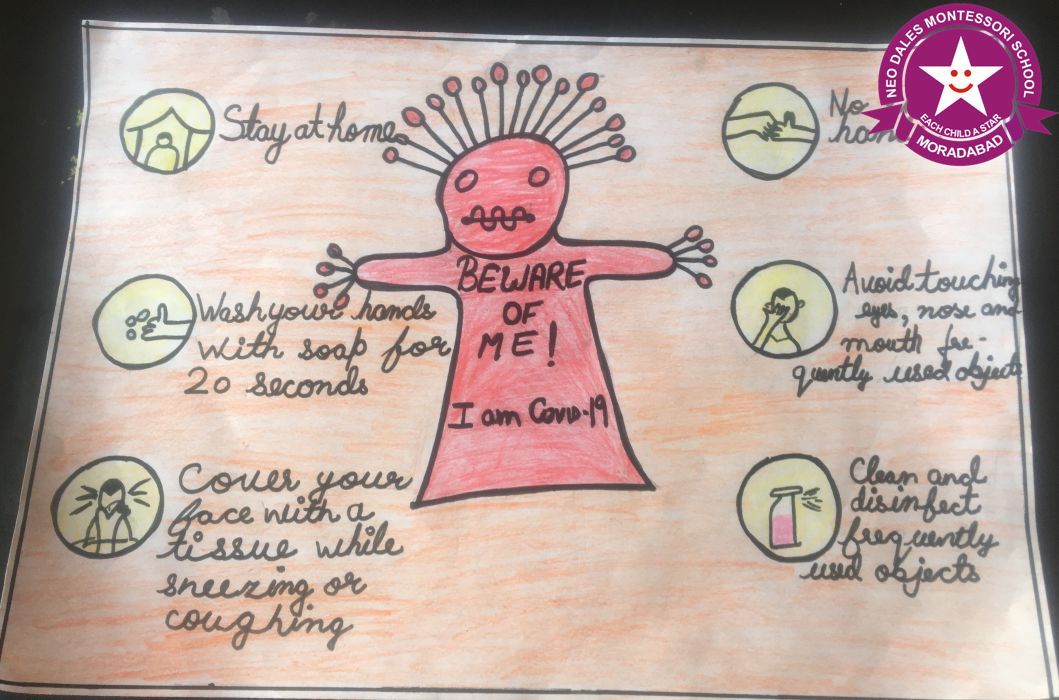 Stay at home
Wash your hands
with soap for
20 seconds
Cover your
face with a
tissue while
sneezing or
coughing
BEWARE
OF
ME!
I am Covid-19
No
Avoid touching
eyes, nose and
mouth fre-
quently used objects
Clean and
disinfect
frequently
used objects
NEO DALES MONTESSORI SCHOOL
EACH CHILD A STAR
MORADABAD